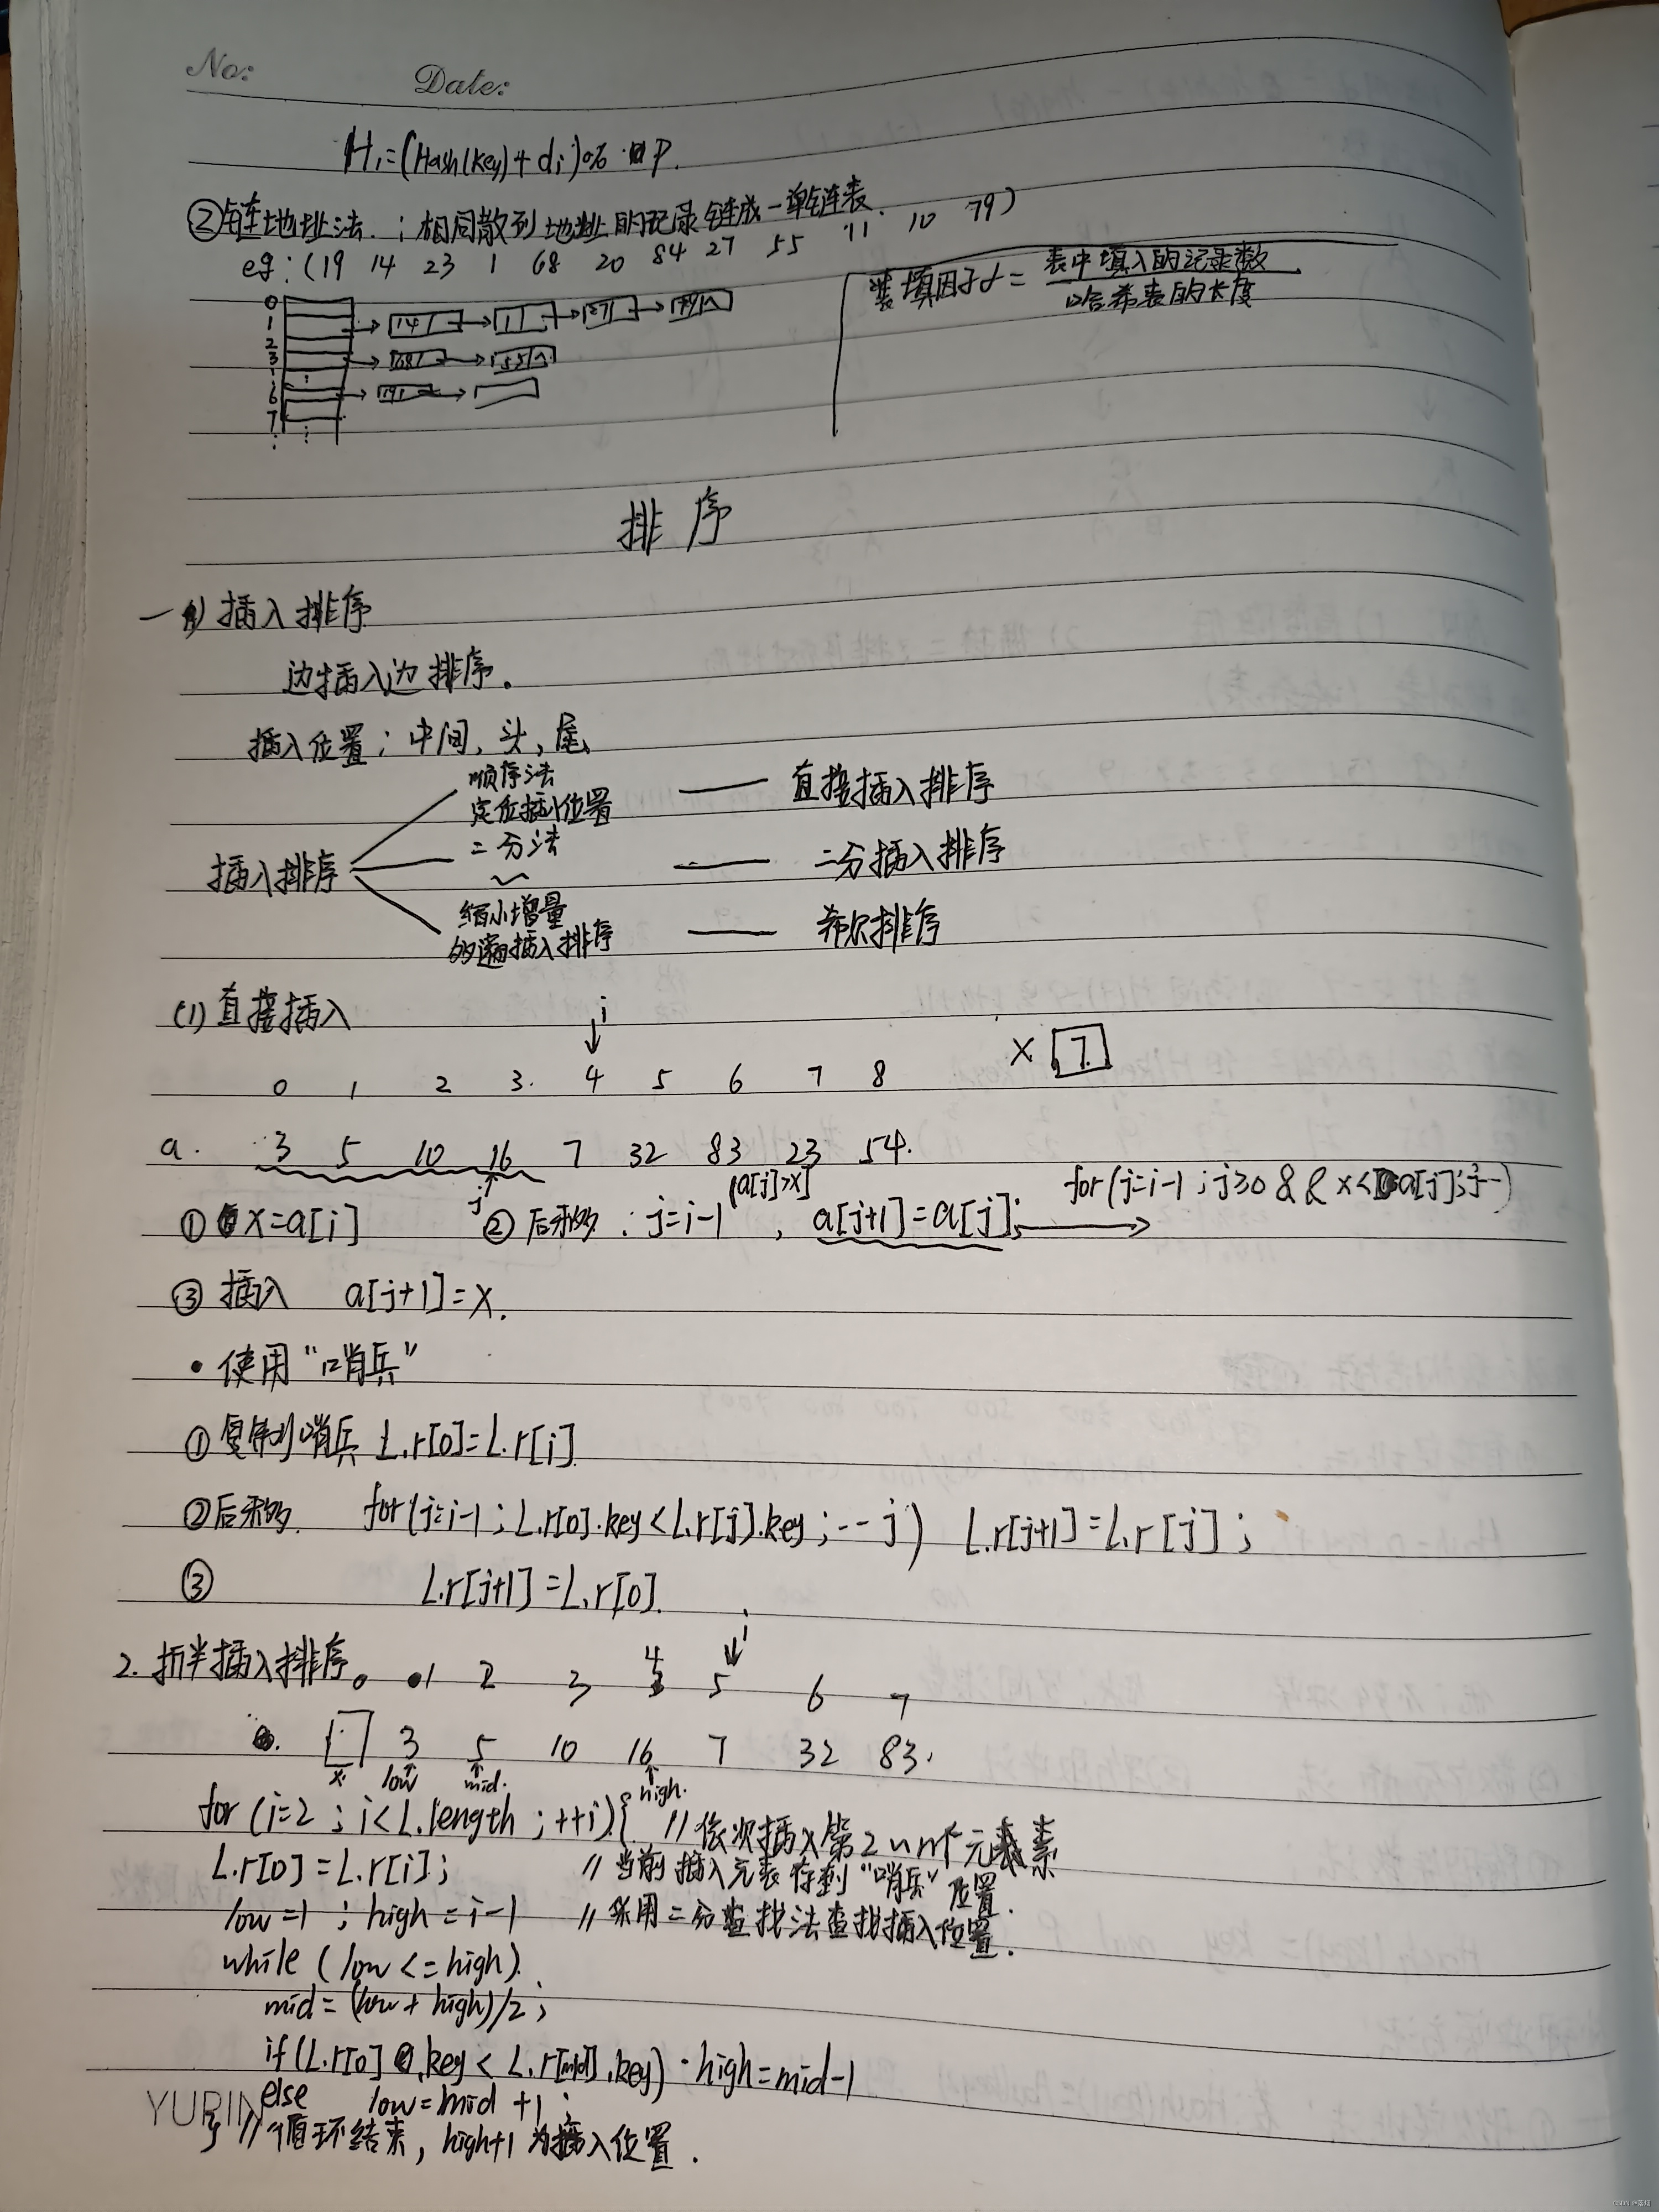 No:    Date:
Hi=(Hash(key)+di)% P.
②链地址法.：相同散列地址的记录链成一单链表.
eg：(19 14 23 1 68 20 84 27 55 11 10 79)
装填因子α= 表中填入的记录数
哈希表的长度
0
1 → 14 → 1 → 27 → 79 ∧
2
3 → 68 → 55 ∧
⋮
6 → 19 →
7
⋮ ⋮
排序
一 插入排序
边插入边排序.
插入位置：中间,头,尾
顺序法
定位插入位置 —— 直接插入排序
二分法
插入排序 —— 二分插入排序
缩小增量
多遍插入排序 —— 希尔排序
(1) 直接插入 i
↓ x 7
0 1 2 3. 4 5 6 7 8
a. 3 5 10 16 7 32 83 23 54.
j (a[j]>x] for(j=i-1;j≥0&&x<a[j];j--)
① x=a[i] ②后移：j=i-1, a[j+1]=a[j];
③ 插入 a[j+1]=x.
• 使用“哨兵”
①复制到哨兵 L.r[0]=L.r[i]
②后移. for(j=i-1;L.r[0].key<L.r[j].key;--j) L.r[j+1]=L.r[j];
③ L.r[j+1]=L.r[0].
i
2. 折半插入排序。 1 2 3 4 5 6 7
3 5 10 16 7 32 83.
x low mid. high.
for(i=2;i<L.length;++i){ //依次插入第2~n个元素
L.r[0]=L.r[i]; //当前插入元素存到“哨兵”位置.
low=1;high=i-1 //采用二分查找法查找插入位置.
while(low<=high)
mid=(low+high)/2;
if(L.r[0].key<L.r[mid].key) high=mid-1
else low=mid+1;
YURIN
} //循环结束, high+1为插入位置.